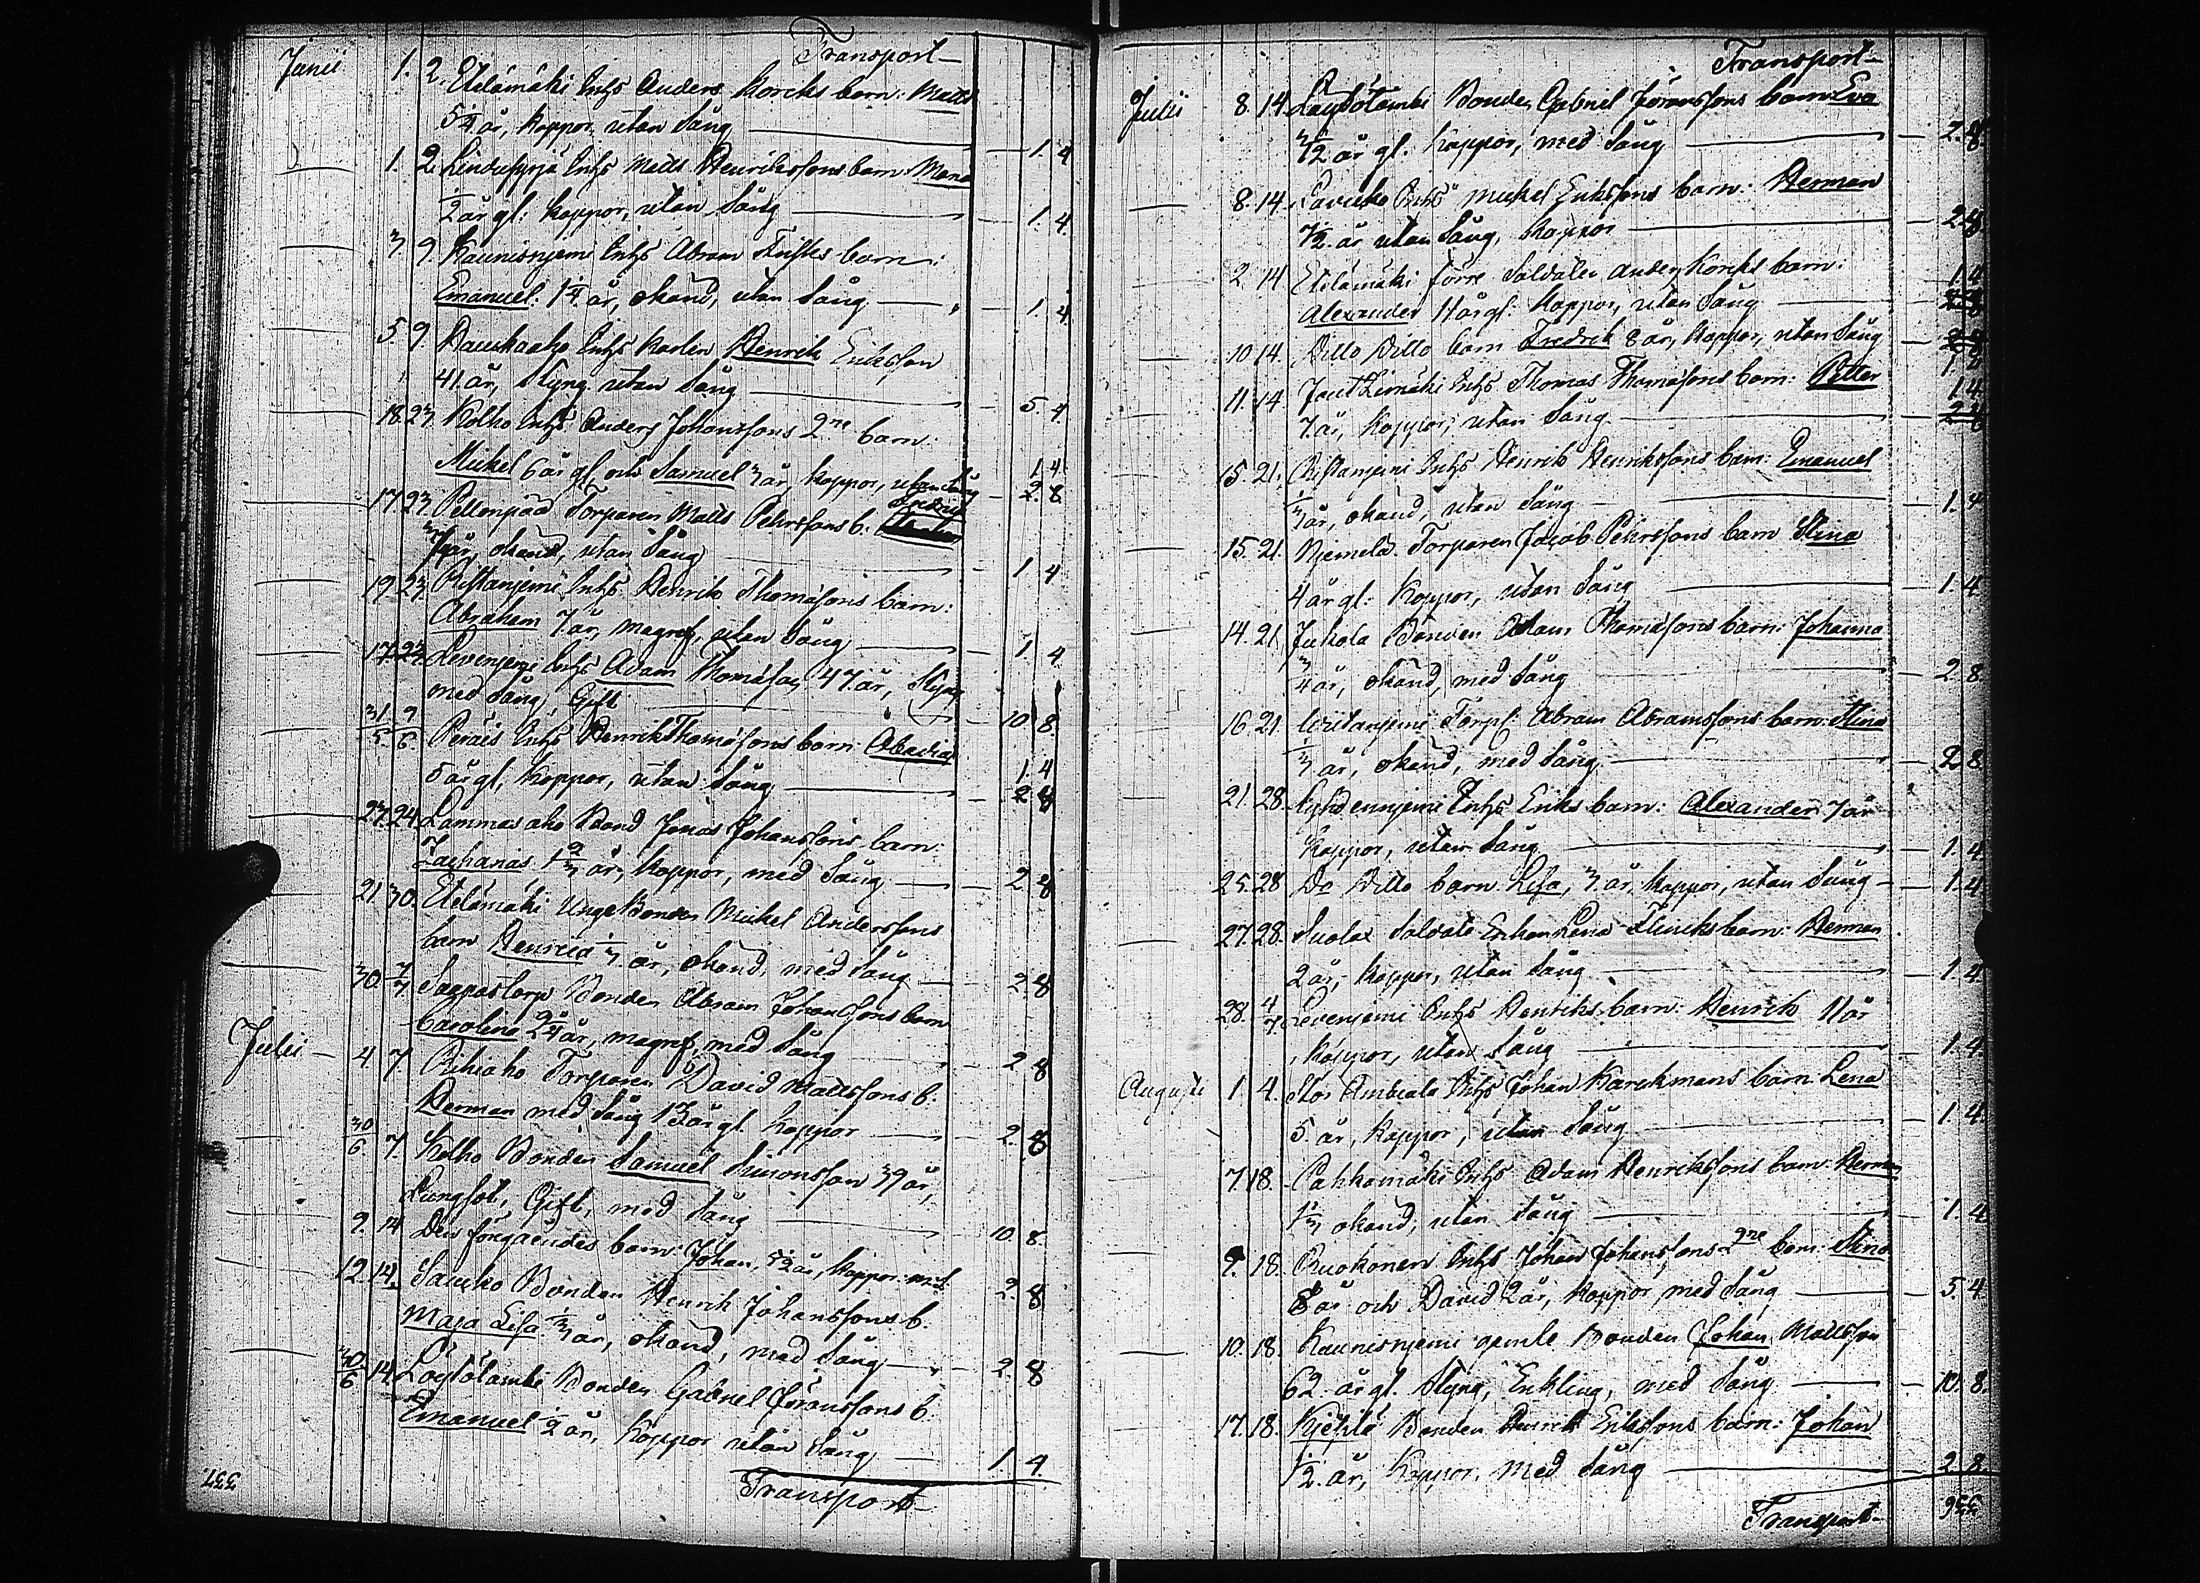 Transport
Junii 1. 2. Etelämäki Inhs Anders Korcks barn: Matts
5 1/4 år, koppor, utan Sång — 1. 4
1. 2 Inhs Matts Henrikssons barn Maria
1/2 år gl: koppor, utan Sång — 1. 4.
3. 9. Kaunisnjemi Inhs Abram Frisks barn:
Emanuel: 1 1/4 år, okänd, utan Sång — 1. 4.
5. 9. Inhs Karlen Henrik Eriksson
41 år, Styng utan Sång — 5. 4
18. 23. Kolho Inhs Anders Johanssons 2ne barn:
Mickel 6 år gl och Samuel 3 år, koppor, utan Sång — 1 4 2. 8
17. 23 Pellonpää Torparen Matts Pehrssons b: Fredrik
år, okänd, utan Sång — 1 4
19. 23 Ristanjemi Inhs Henrik Thomassons barn:
Abraham 7 år, magref, utan Sång — 1 4
17. 23. Levenjemi Inhs Adam Thomasson 47 år, Styng
med Sång, Gift — 10. 8.
31/5. 9/6. Peräis Inhs Henrik Thomassons barn
5 år gl, koppor, utan Sång — 1. 4 2 8
23. 24. Lammasaho Bond Jonas Johanssons barn:
Zacharias 1 2/3 år, koppor, med Sång — 2 8
21 30. Etelämäki Unge Bonden Mickel Anderssons
barn Henrica år, okänd, med Sång — 2. 8
30. 7/7 Saapastorp Bonden Abram Johanssons barn
Carolina 2 3/4 år, magref, med Sång — 2 8
Julii — 4. 7. Rihiaho Torparen David Mattssons b.
Herman med Sång 13 år gl. koppor — 2. 8
30/6. 7. Kolho Bonden Samuel Simonsson 39 år,
Lungsot, Gift, med Sång — 10. 8.
9. 14 Den föregåendes barn: Johan, 5 1/2 år, koppor. m.S. 2. 8
12. 14. Sauko Bonden Henrik Johanssons b.
Maja Lisa 1/3 år, okänd, med Sång — 2. 8
30/6 14. Löytölambi Bonden Gabriel Göranssons b.
Emanuel 1/2 år, koppor utan Sång — 1. 4.
Transport
337.
Transport
Julii 8. 14. Löytölambi Bonden Gabriel Göranssons barn Eva
år gl. koppor, med Sång — 2. 8
8. 14. Inhs Mickel Erikssons barn: Herman
år utan Sång, koppor — 2. 8
2. 14 Etelämäki förre Soldaten Anders Korcks barn:
Alexander 11 år gl: koppor, utan Sång — 1 4
10. 14. Ditto Ditto barn Fredrik 8 år, koppor, utan Sång — 1. 4
11. 14 Inhs Thomas Thomassons barn: Petter
7. år, koppor, utan Sång — 1 4
15. 21. Ristanjemi Inhs Henrik Henrikssons barn: Emanuel
1/3 år, okänd, utan Sång — 1. 4
15. 21. Njemelä Torparen Jacob Pehrssons barn Stina
4 år gl: koppor, utan Sång — 1. 4
14. 21 Juhola Bonden Adam Thomassons barn: Johanna
3/4 år, okänd, med Sång — 2 8
16. 21. Torp: Abram Abramssons barn: Stina
1/3 år, okänd, med Sång — 2 8
21. 28. Inhs Eriks barn: Alexander 7 år
koppor, utan Sång — 1. 4
25. 28 Do Ditto barn: Lisa, 3 år, koppor, utan Sång — 1. 4
27. 28. Soldats Enkan Lena Flincks barn: Herman
2 år, koppor, utan Sång — 1. 4
28. 4/7 Levenjemi Inhs Henriks barn: Henrik 11 år
koppor, utan Sång — 1. 4.
Augusti 1. 4. Stor Ambiala Inhs Johan Karckmans barn Lena
5. år, koppor, utan Sång — 1. 4.
7. 18. Pahkamäki Inhs Adam Henrikssons barn: Herman
1 1/3 okänd, utan Sång — 1. 4
9. 18. Ruokonen Inhs Johan Johanssons 2ne barn: Stina
8 år och David 2 år, koppor, med Sång — 5. 4.
10. 18. Kaunisnjemi gamle Bonden Johan Mattsson
62. år gl. Styng, Enkling, med Sång — 10. 8.
17. 18. Bonden Henrik Erikssons barn: Johan
1/2. år, koppor, med Sång — 2. 8.
Transport
336